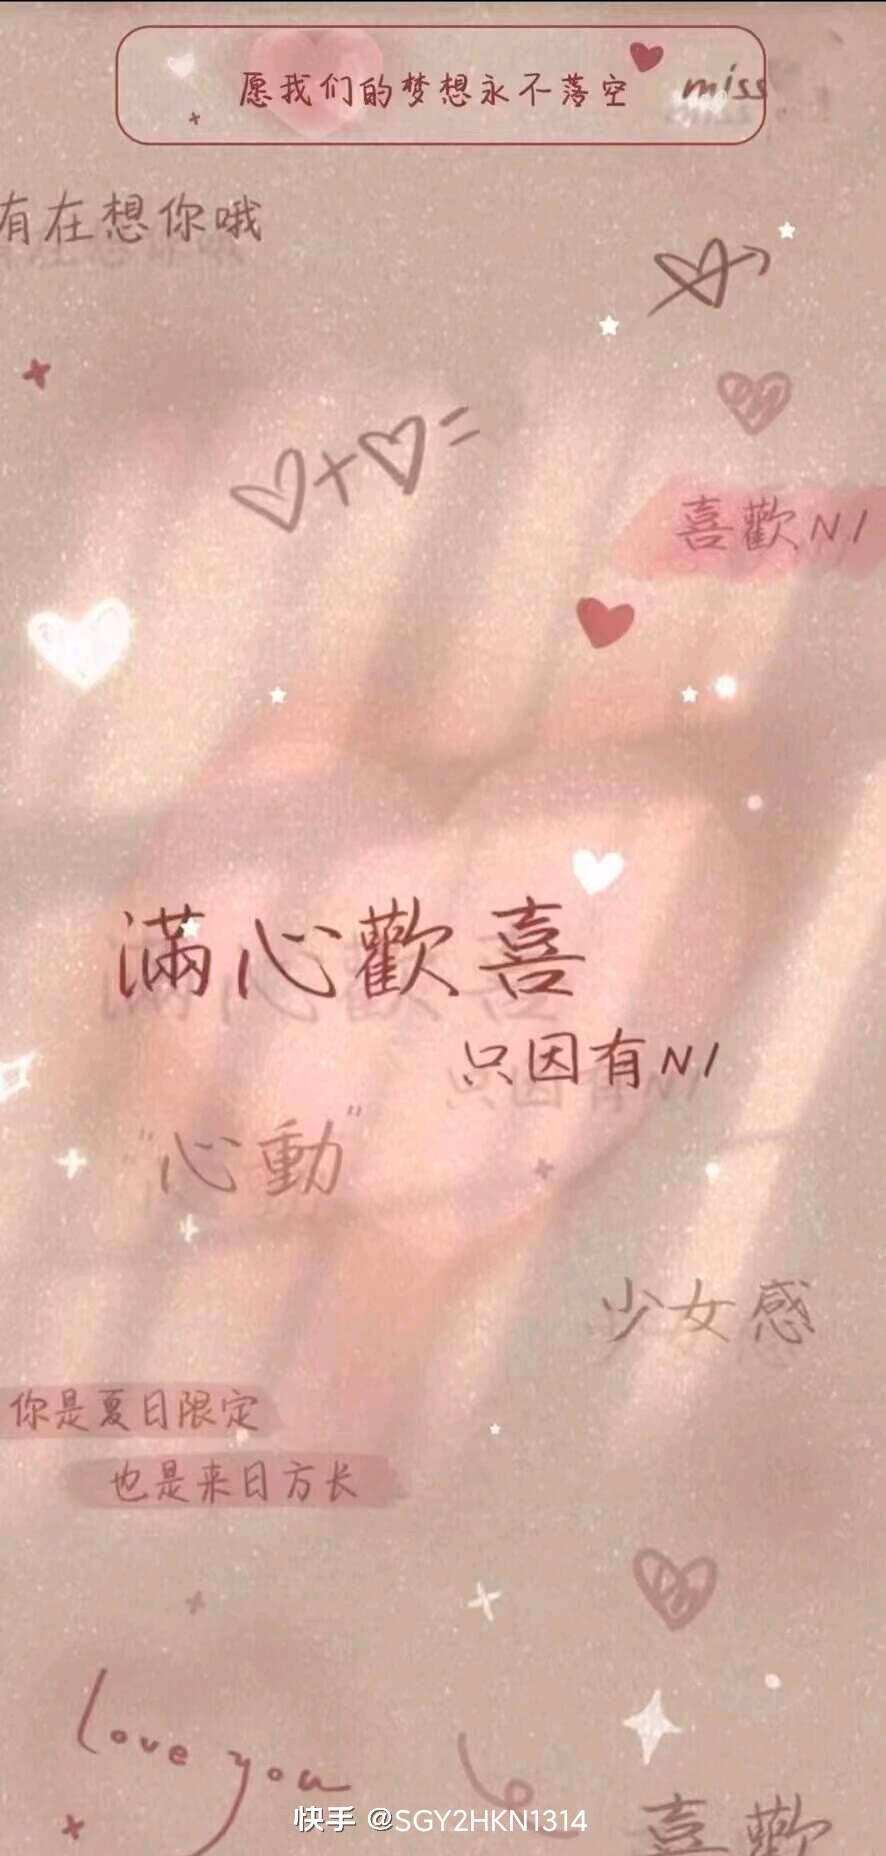 愿我们的梦想永不落空
miss
有在想你哦
喜歡NI
滿心歡喜
只因有NI
"心動"
少女感
你是夏日限定
也是来日方长
love you
快手 @SGY2HKN1314
喜歡